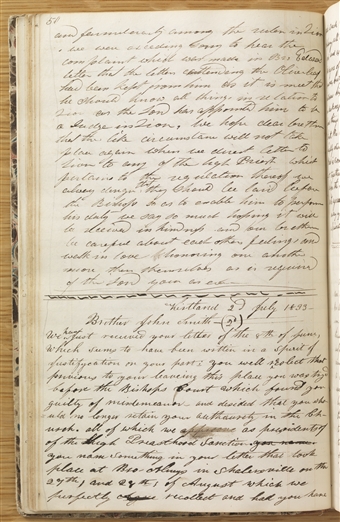 50
and familiarly among the rulers in Zion
we were exceeding sorry to hear the
complaint which was made in Bro Edward
letter that the letters
had been kept from him for it is meet that
he should know all things in relation to
Zion as the Lord has appointed him to be
a Judge in Zion. We hope dear brethren
that the like circumstance will not take
place again when we direct letters to
Zion to any of the high Priests which
pertains to the regulation thereof we
always design that they should be laid before
the Bishop so as to enable him to perform
his duty we say so much hoping it will
be received in kindness and our brethren
be careful about each others feelings and
walk in love honoring one another
more than themselves as is required
of the Lord yours as ever
Kirtland 2d July 1833—
Brother John Smith—(2d)
We have just received your letter of the 8th of June,
which seems to have been written in a spirit of
justification on your part: you will recolect that
previous to your leaving this place you was tryed
before the Bishops Court which found you
guilty of misdemeanor and decided that you sho
uld no longer retain your authority in the Ch
urch. all of which we as presidents
of the High Priesthood Sanction.
you name something in your letter that took
place at Bro in Shalersville on the
27th and 28th of August which we
perfectly recollect and had you have